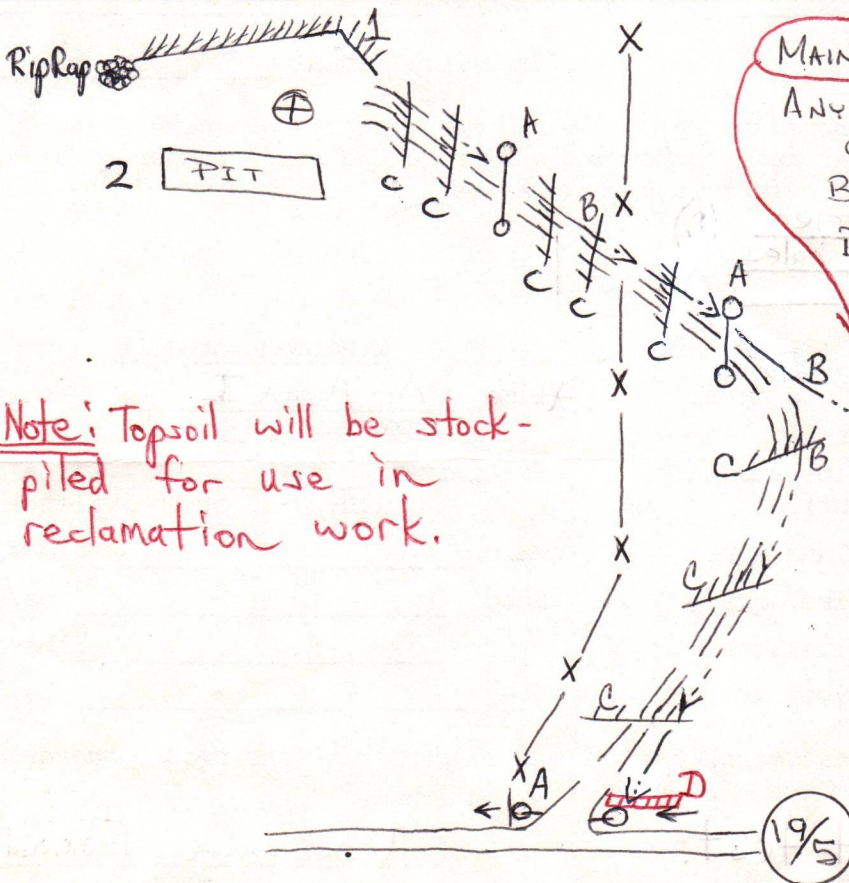 1
RipRap
2 PIT
A
C
C
B
C
C
A
C
B
C B
C
C
A
D
19/5
MAIN
ANY
B
Note: Topsoil will be stock-
piled for use in
reclamation work.